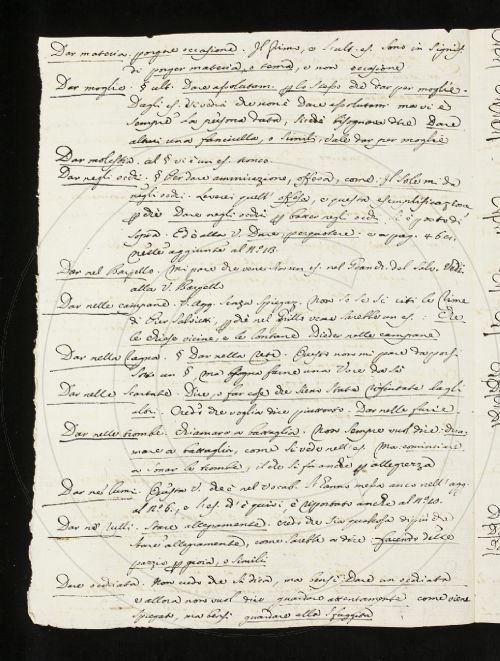 Dar materia. porgere occasione. Il primo, e Sult. es. sono in signif.
di porger materia, o tema, e non occasione
Dar moglie. § ult. Dare assolutam. per lo stesso che dar per moglie.
Dagli es. si vede che non è dare assolutam. ma vi è
sempre la persona data, sicchè bisognava dire Dare
altrui una fanciulla, o simili, vale dar per moglie
Dar molestia. al § vi è un es. tronco.
Dar negli occhi. § Per dare ammirazione, offesa, come: Il Sole mi dà
negli occhi. Leverei quell' offesa, e questa esemplificazione
perchè Dare negli occhi per batter negli occhi è posto di
sopra. Ed è alla V. Dare, percuotere: e a pag. 46
nelle aggiunte al N.° 18.
Dar nel Bargello. Mi pare che venne un es. nel Grand. del Salv. Vedi
alla V. Bargello
Dar nelle campane. V. Agg. senza spiegaz. Non so se si citi le Rime
di Pier Salvetti, perchè nel Grillo viene sarebbe un es.: E le
le chiese vicine, e le lontane Dieder nelle campane
Dar nella Ragna. § Dar nella Rete. Questo non mi pare da porsi
sotto un § ma bisogna farne una Voce da sè
Dar nelle scartate. Dire, o far cose che sieno state rifiutate dagli
altri. Credo che voglia dire piuttosto. Dar nelle furie
Dar nelle trombe. Chiamare a battaglia. Non sempre vuol dire chia-
mare a battaglia, come si vede nell' es. Ma cominciare
a sonar le trombe, il che si fa anche per allegrezza
Dar ne' lumi. Questa V. che è nel Vocab. l'hanno messa anco nell' agg.
al N.° 6., e l' es. ch' è quivi è riportato anche al N.° 10.
Dar ne' lulli. Stare allegramente. Credo che sia qualcosa di più che
stare allegramente, come sarebbe a dire facendo delle
pazzie per gioia, o simili
Dare occhiata. Non credo che si dica, ma bensì Dare un' occhiata
e allora non vuol dire guardare attentamente come viene
spiegato, ma bensì guardare alla sfuggita